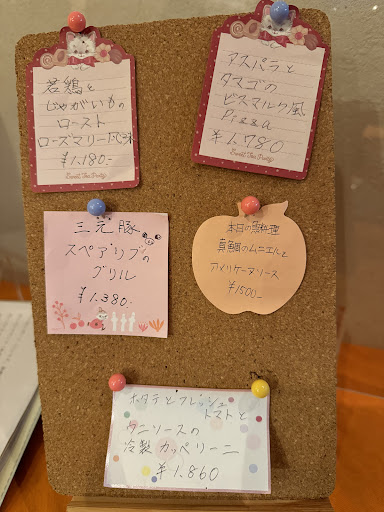 若鶏と
じゃがいもの
ロースト
ローズマリー風味
¥1,180-
Sweet Tea Party
アスパラと
タマゴの
ビスマルク風
Pizza
¥1,780
Sweet Tea Party
三元豚
スペアリブの
グリル
¥1.380-
本日の魚料理
真鯛のムニエルと
アメリケーヌソース
¥1500-
ホタテとフレッシュ
トマトと
ウニソースの
冷製カッペリーニ
¥1.860